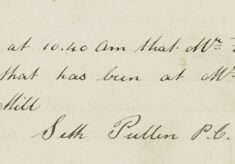 at 10.40 am that Mr
that has been at Mr
Mill
Seth Pullen P.C.